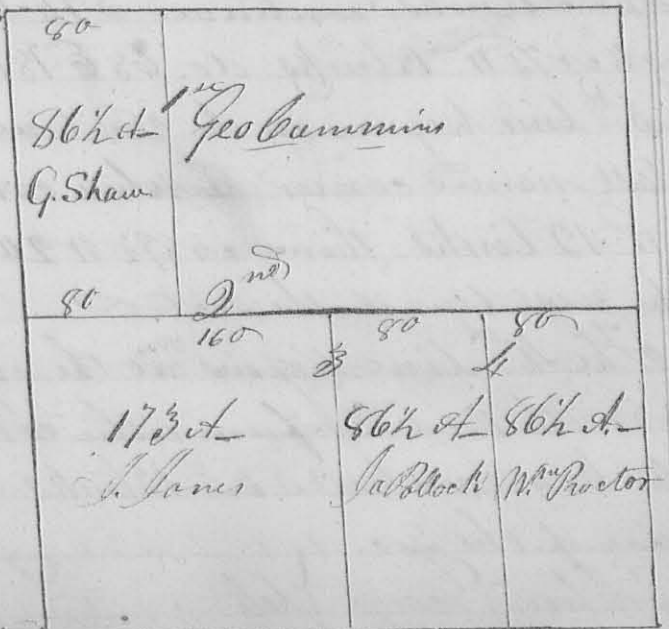 80
86½ A
G. Shaw
1st
Geo Cummins
80
2nd
160
173 A
J. Jones
80
3
86½ A
Ja Pollock
80
4
86½ A.
Wm Proctor